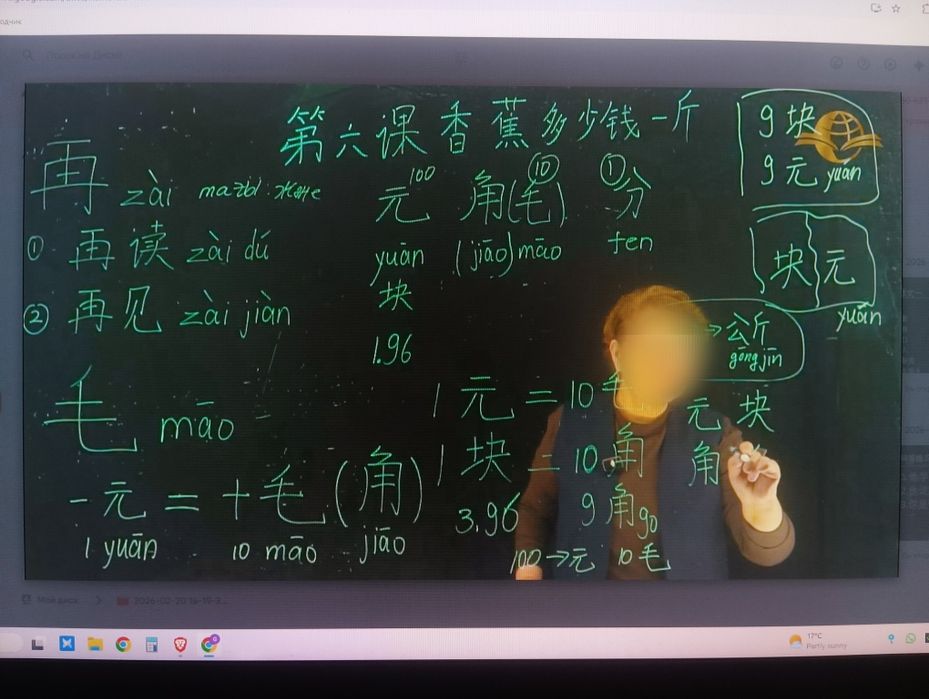 Поиск на Диске
第六课香蕉多少钱一斤
再 zài mazbl жəне
① 再读 zài dú
② 再见 zài jiàn
毛 māo
一元 = 十毛 (角)
1 yuán 10 māo jiāo
100 ⑩ ①
元 角(毛) 分
yuán (jiāo) māo fen
块
1.96
1 元 = 10 毛
1 块 = 10 角
3.96 9 角 90
100 → 元 10 毛
9 块
9 元 yuán
块 元
yuán
→ 公斤
gōng jīn
元 块
角
Мой диск > 2026-02-20 18-19-3...
17°C
Partly sunny